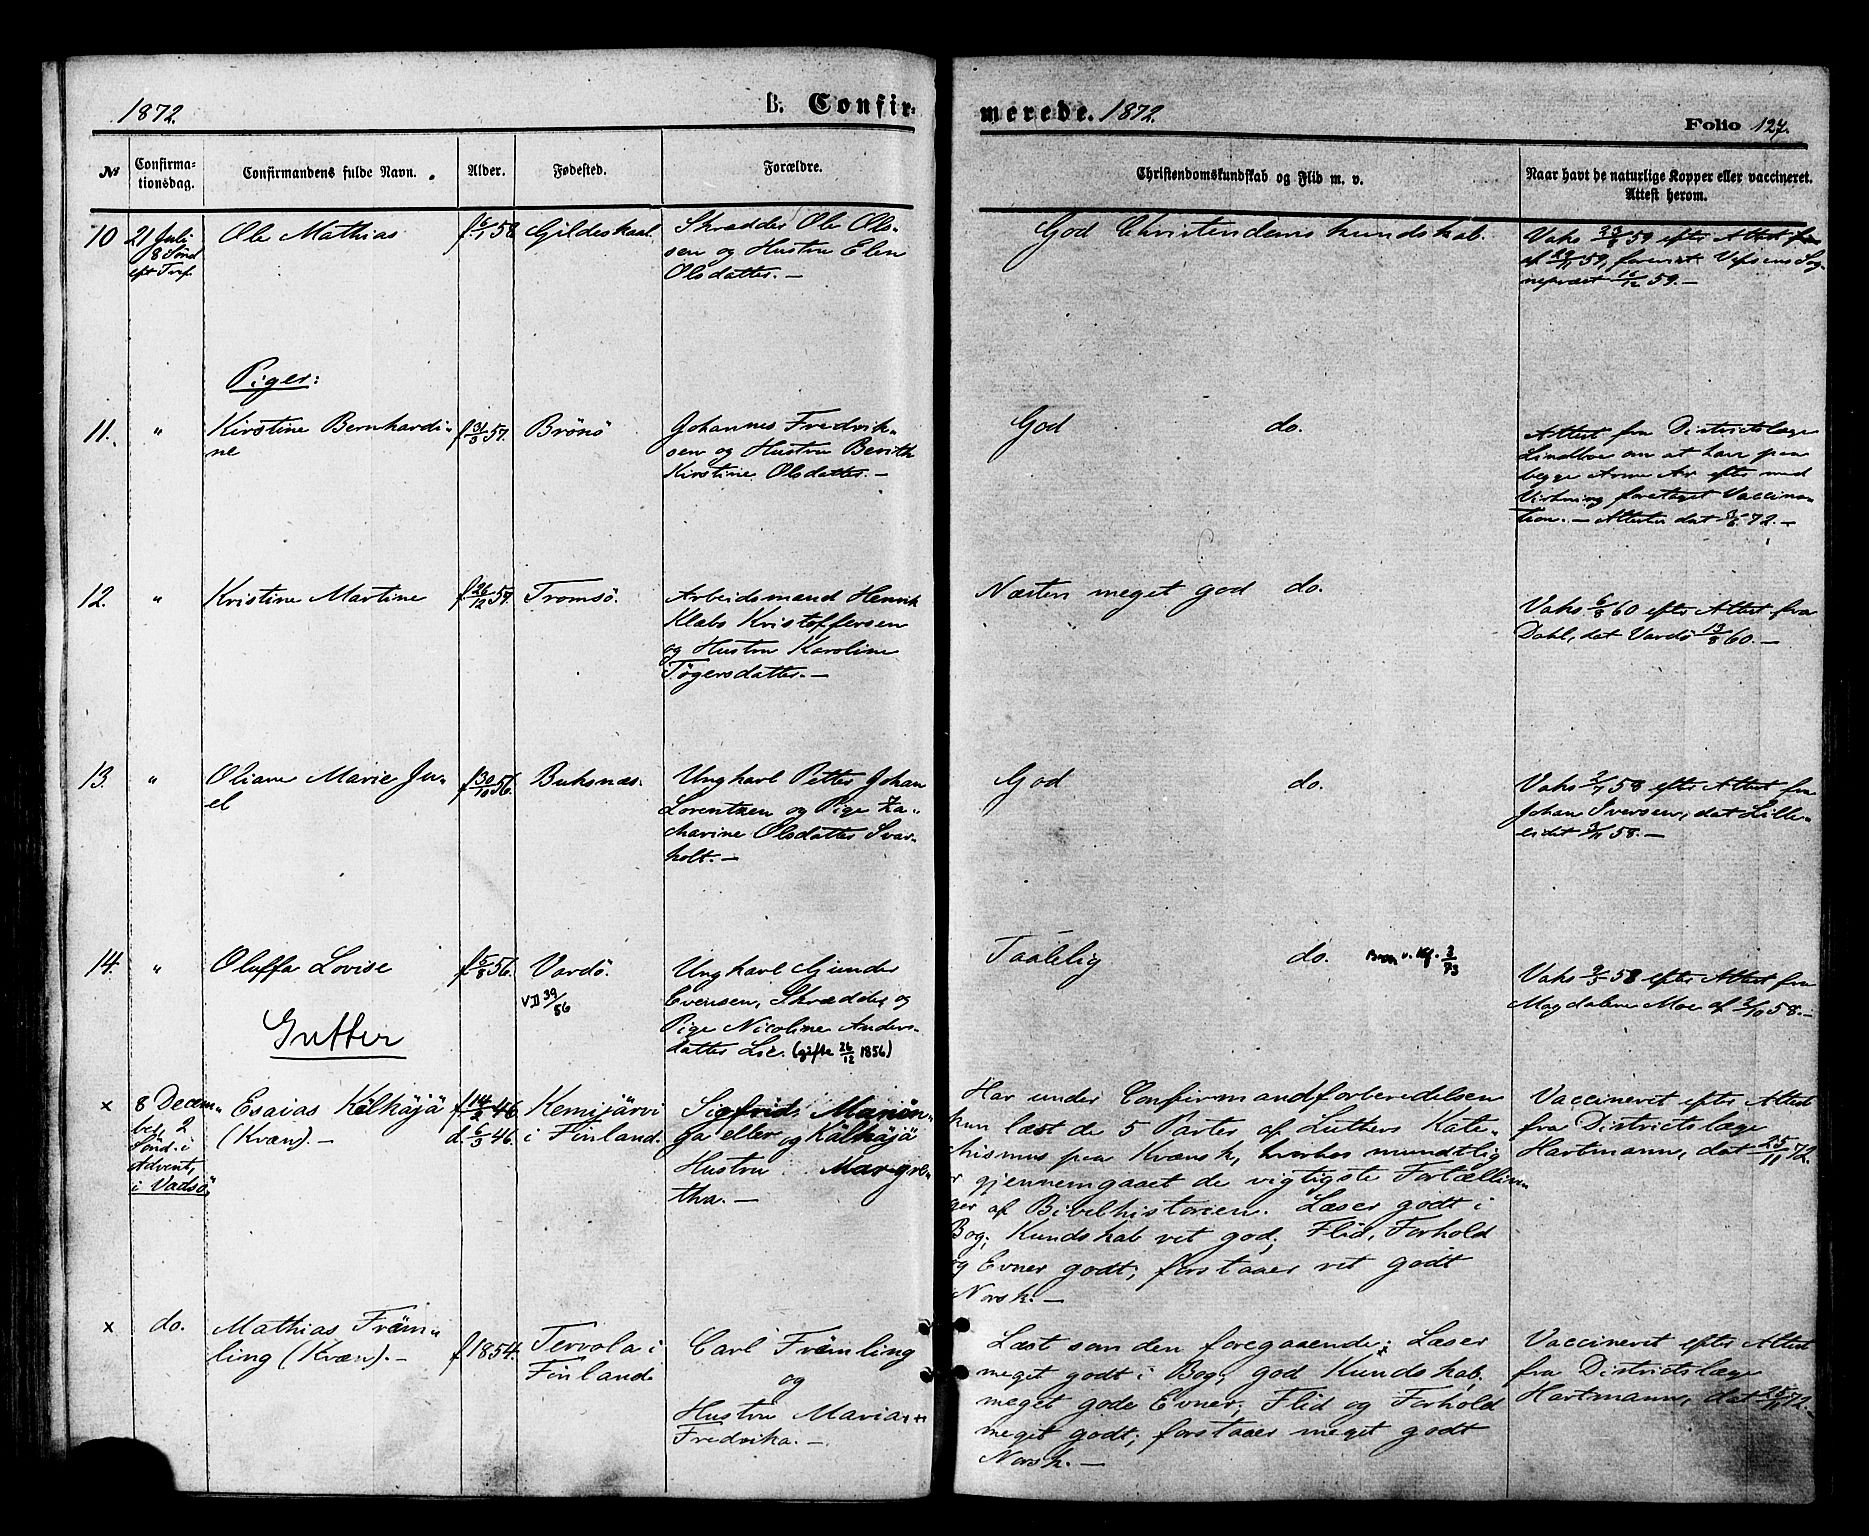 1872. B. Confir-
merede. 1872. Folio 127.
№ Confirma-
tionsdag. Confirmandens fulde Navn. Alder. Fødested. Forældre. Christendomskundskab og Flid m. v. Naar havt de naturlige Kopper eller vaccineret.
Attest herom.
10 21 Juli
8 Sønd
eft Tref.
Ole Mathias
Gildeskaal.
Skrædder Ole Ols-
sen og Hustru Elen
Olsdatter. —
God Christendomskundskab.
Vaks 23/8 59 efter Attest fra
Sog-
nepræst 16/12 59. —
Piger:
11. " Kirstine Bernhardi-
ne
f 31/3 57. Brönö
Johannes Fredrik-
sen og Hustru Berith
Kirstine Olsdatter. —
God do.
Attest fra Districtslæge
Lindboe om at have paa
begge Arme Ar efter med
Virkning foretaget Vaccina-
tion. — Attesten dat 72. —
12. " Kristine Martine
f. 26/12 57. Tromsö.
Arbeidsmand Henrik
Klabs Kristoffersen
og Hustru Karoline
Tögersdatter. —
Næsten meget god do.
Vaks 6/8 60 efter Attest fra
Dahl, dat Vardö 13/8 60. —
13. " Oliane Marie Ju-
el
f 30/10 56. Buksnæs.
Ungkarl Petter Johan
Lorentzen og Pige Za-
charine Olsdatter Svar-
holt. —
God do.
Vaks 58 efter Attest fra
Johan Iversen, dat Lille-
eidet 58. —
14. " Oluffa Lovise
f 5/8 56. Vardö.
VD 39/56
Ungkarl Gunder
Evensen, Skrædder og
Pige Nicoline Anders-
datter Lie. (gifte 26/12 1856)
Taalelig do.
Vaks 58 efter Attest fra
Magdalene Moe af 58. —
Gutter
× 8 Decem-
ber, 2
Sönd. i
Advent,
i Vadsö
Esaias Kälkäjä
(Kvæn). —
f 14/3 46
d. 6/3 46.
Kemijärvi
i Finland.
Sigfrids
ga eller og Kälkäjä
Hustru Margre-
tha. —
Har under Confirmandforberedelsen
kun læst de 5 Parter af Luthers Kate-
chismus paa Kvænsk, hvorhos mundtlig
er gjennemgaaet de vigtigste Fortællin-
ger af Bibelhistorien. Læser godt i
Bog; Kundskab ret god; Flid, Forhold
og Evner godt; forstaaer ret godt
Norsk. —
Vaccineret efter Attest
fra Districtslæge
Hartmann, dat 25/11 72.
× do. Mathias Främ-
ling (Kvæn). —
f 1854. Tervola i
Finland
Carl Främling
og
Hustru Maria
Fredrika. —
Læst som den foregaaende; Læser
meget godt i Bog; god Kundskab,
meget gode Evner; Flid og Forhold
meget godt; forstaaer meget godt
Norsk. —
Vaccineret efter Attest
fra Districtslæge
Hartmann, dat 25/11 72. —